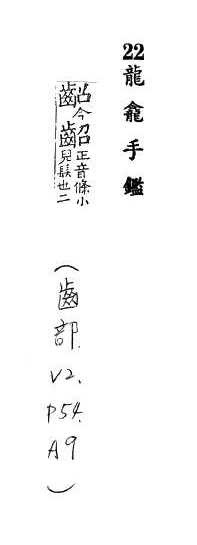 22龍龕手鑑
今齠正音條小兒髮也二
（齒部. V2. P54. A9）